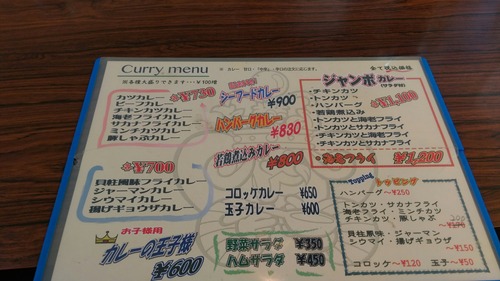 Curry menu
全て税込価格
各¥730
カツカレー
ビーフカレー
チキンカツカレー
海老フライカレー
サカナフライカレー
ミンチカツカレー
豚しゃぶカレー
シーフードカレー
¥900
ハンバーグカレー
¥830
若鶏煮込みカレー
¥800
ジャンボカレー
(サラダ付)
・チキンカツ
・トンカツ
・ハンバーグ
・若鶏煮込み
・トンカツと海老フライ
・トンカツとサカナフライ
・チキンカツと海老フライ
・海老フライ ¥1,200
各¥700
貝柱風味フライカレー
ジャーマンカレー
シウマイカレー
揚げギョウザカレー
コロッケカレー ¥650
玉子カレー ¥600
野菜サラダ ¥350
ハムサラダ ¥450
お子様用
カレーの王子様
¥600
Topping
トッピング
ハンバーグ〜¥250
トンカツ・サカナフライ
海老フライ・ミンチカツ
チキンカツ・豚しゃぶ
200
貝柱風味・ジャーマン
シウマイ・揚げギョウザ
〜¥150
コロッケ〜¥120 玉子〜¥50